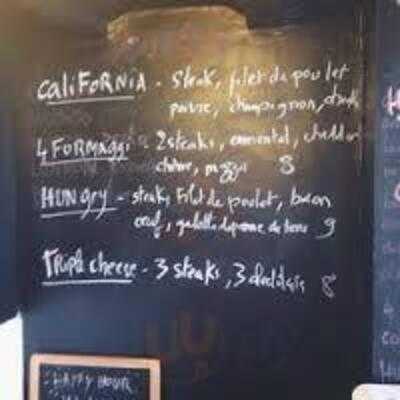 CALIFORNIA - Steak, filet de poulet
poivre, champignon,
4 FORMAGGI - 2 steaks, emmental, cheddar
chèvre, 8
HUNGRY - steak, Filet de poulet, bacon
oeuf, galette de pomme de terre 9
TRIPLE cheese - 3 steaks, 3 cheddars 8
HAPPY HOUR